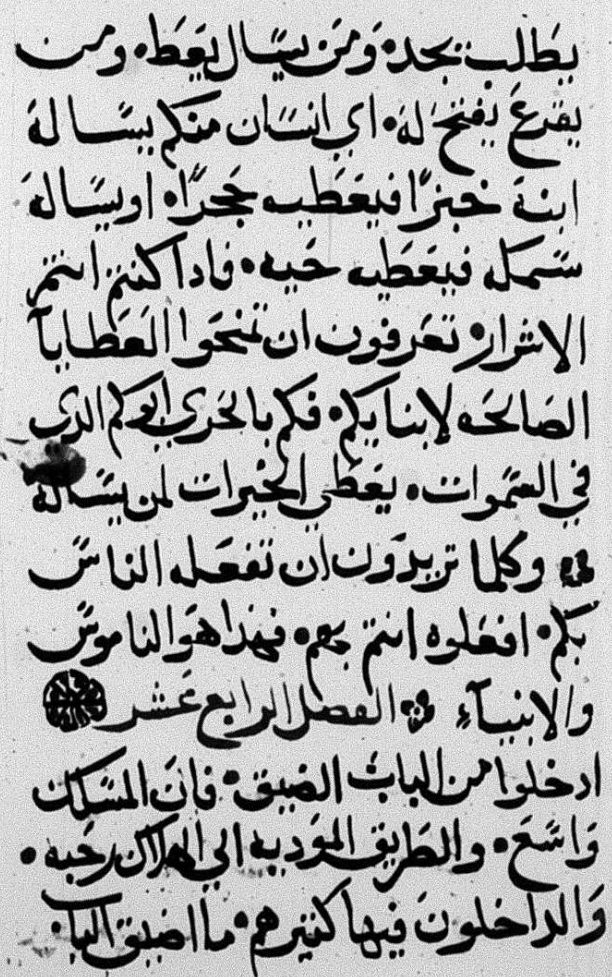 يطلب يجد• ومن يسال يعطه• ومن
يقرع يفتح له• اي انسان منكم يساله
ابنه خبزًا فيعطيه حجرًا• او يساله
سمكه فيعطيه حيه• فاذا كنتم انتم
الاشرار• تعرفون ان تمنحوا العطايا
الصالحه لابنايكم• فكم بالحري ابوكم الدي
في السموات• يعطي الخيرات لمن يساله
وكلما تريدون ان تفعله الناس
بكم• افعلوه انتم بهم• فهذا هو الناموس
والانبيآء الفصل الرابع عشر
ادخلوا من الباب الضيق• فان المسلك
واسع• والطريق المودية الي الهلاك رحبه•
والداخلون فيها كثير هم• ما اضيق الباب•